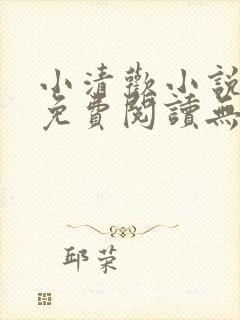 小清歡小說
免費閱讀無
邱荣